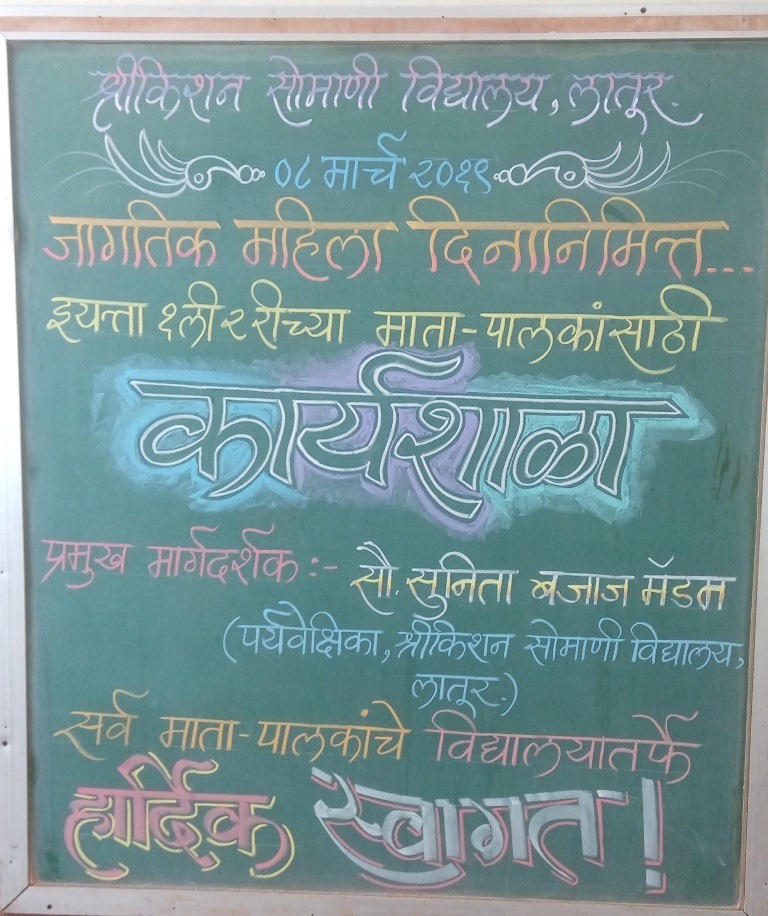 श्रीकिशन सोमाणी विद्यालय, लातूर.
०८ मार्च २०१९
जागतिक महिला दिनानिमित्त...
इयत्ता १ली २ रीच्या माता-पालकांसाठी
कार्यशाळा
प्रमुख मार्गदर्शक :- सौ. सुनिता बजाज मॅडम
(पर्यवेक्षिका, श्रीकिशन सोमाणी विद्यालय,
लातूर.)
सर्व माता-पालकांचे विद्यालयातर्फे
हार्दिक स्वागत!